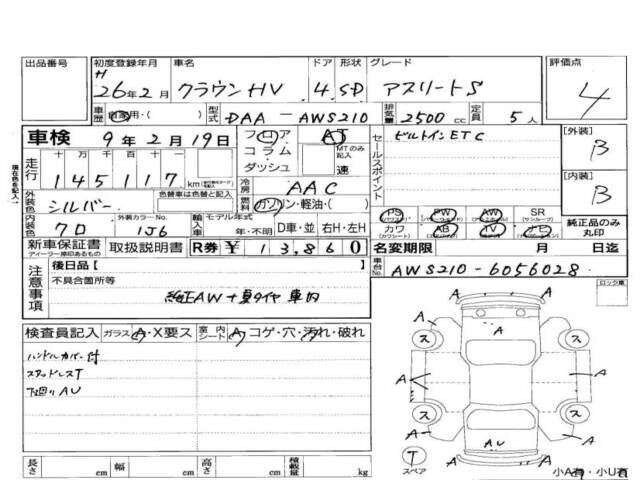 出品番号
初度登録年月 車名 ドア 形状 グレード 評価点
H
26年2月 クラウンHV 4 SD アスリートS 4
車歴 自家用・( ) 型式 DAA-AWS210 排気量 2500 cc 定員 5 人
車検 9年2月19日 フロア AT
コラム MTのみ記入
ダッシュ 速
セールスポイント
ビルトインETC
[外装] B
[内装] B
走行 十万 千百十一
145117 km
冷房 AAC
外装色 シルバー 色替車は色替と記入
燃料 ガソリン・軽油・( )
内装色 クロ 外装カラーNo. 1J6
輸入車 モデル年式 年・不明 D車・並 右H・左H
PS PW AW SR
(パワステ) (パワーウィンドウ) (サンルーフ)
カワ AB TV ナビ
(カワシート) (エアバッグ)
純正品のみ丸印
新車保証書 取扱説明書 R券 ¥13,860
ディーラー捺印あるもの
名変期限 月 日迄
車台No. AWS210-6056028
注意事項
後日品【 】
不具合箇所等
純正AW+夏タイヤ 車内
ロック車
検査員記入 ガラス A・X要ス 室内シート A コゲ・穴・汚れ・破れ
ハンドルカバー付
スタッドレスT
下廻りAU
A
A
ス ス
A A A
A
A A
ス ス
A A
AU
A
T
スペア
小A有・小U有
長さ cm 幅 cm 高さ cm 積載量 kg
現在色を記入